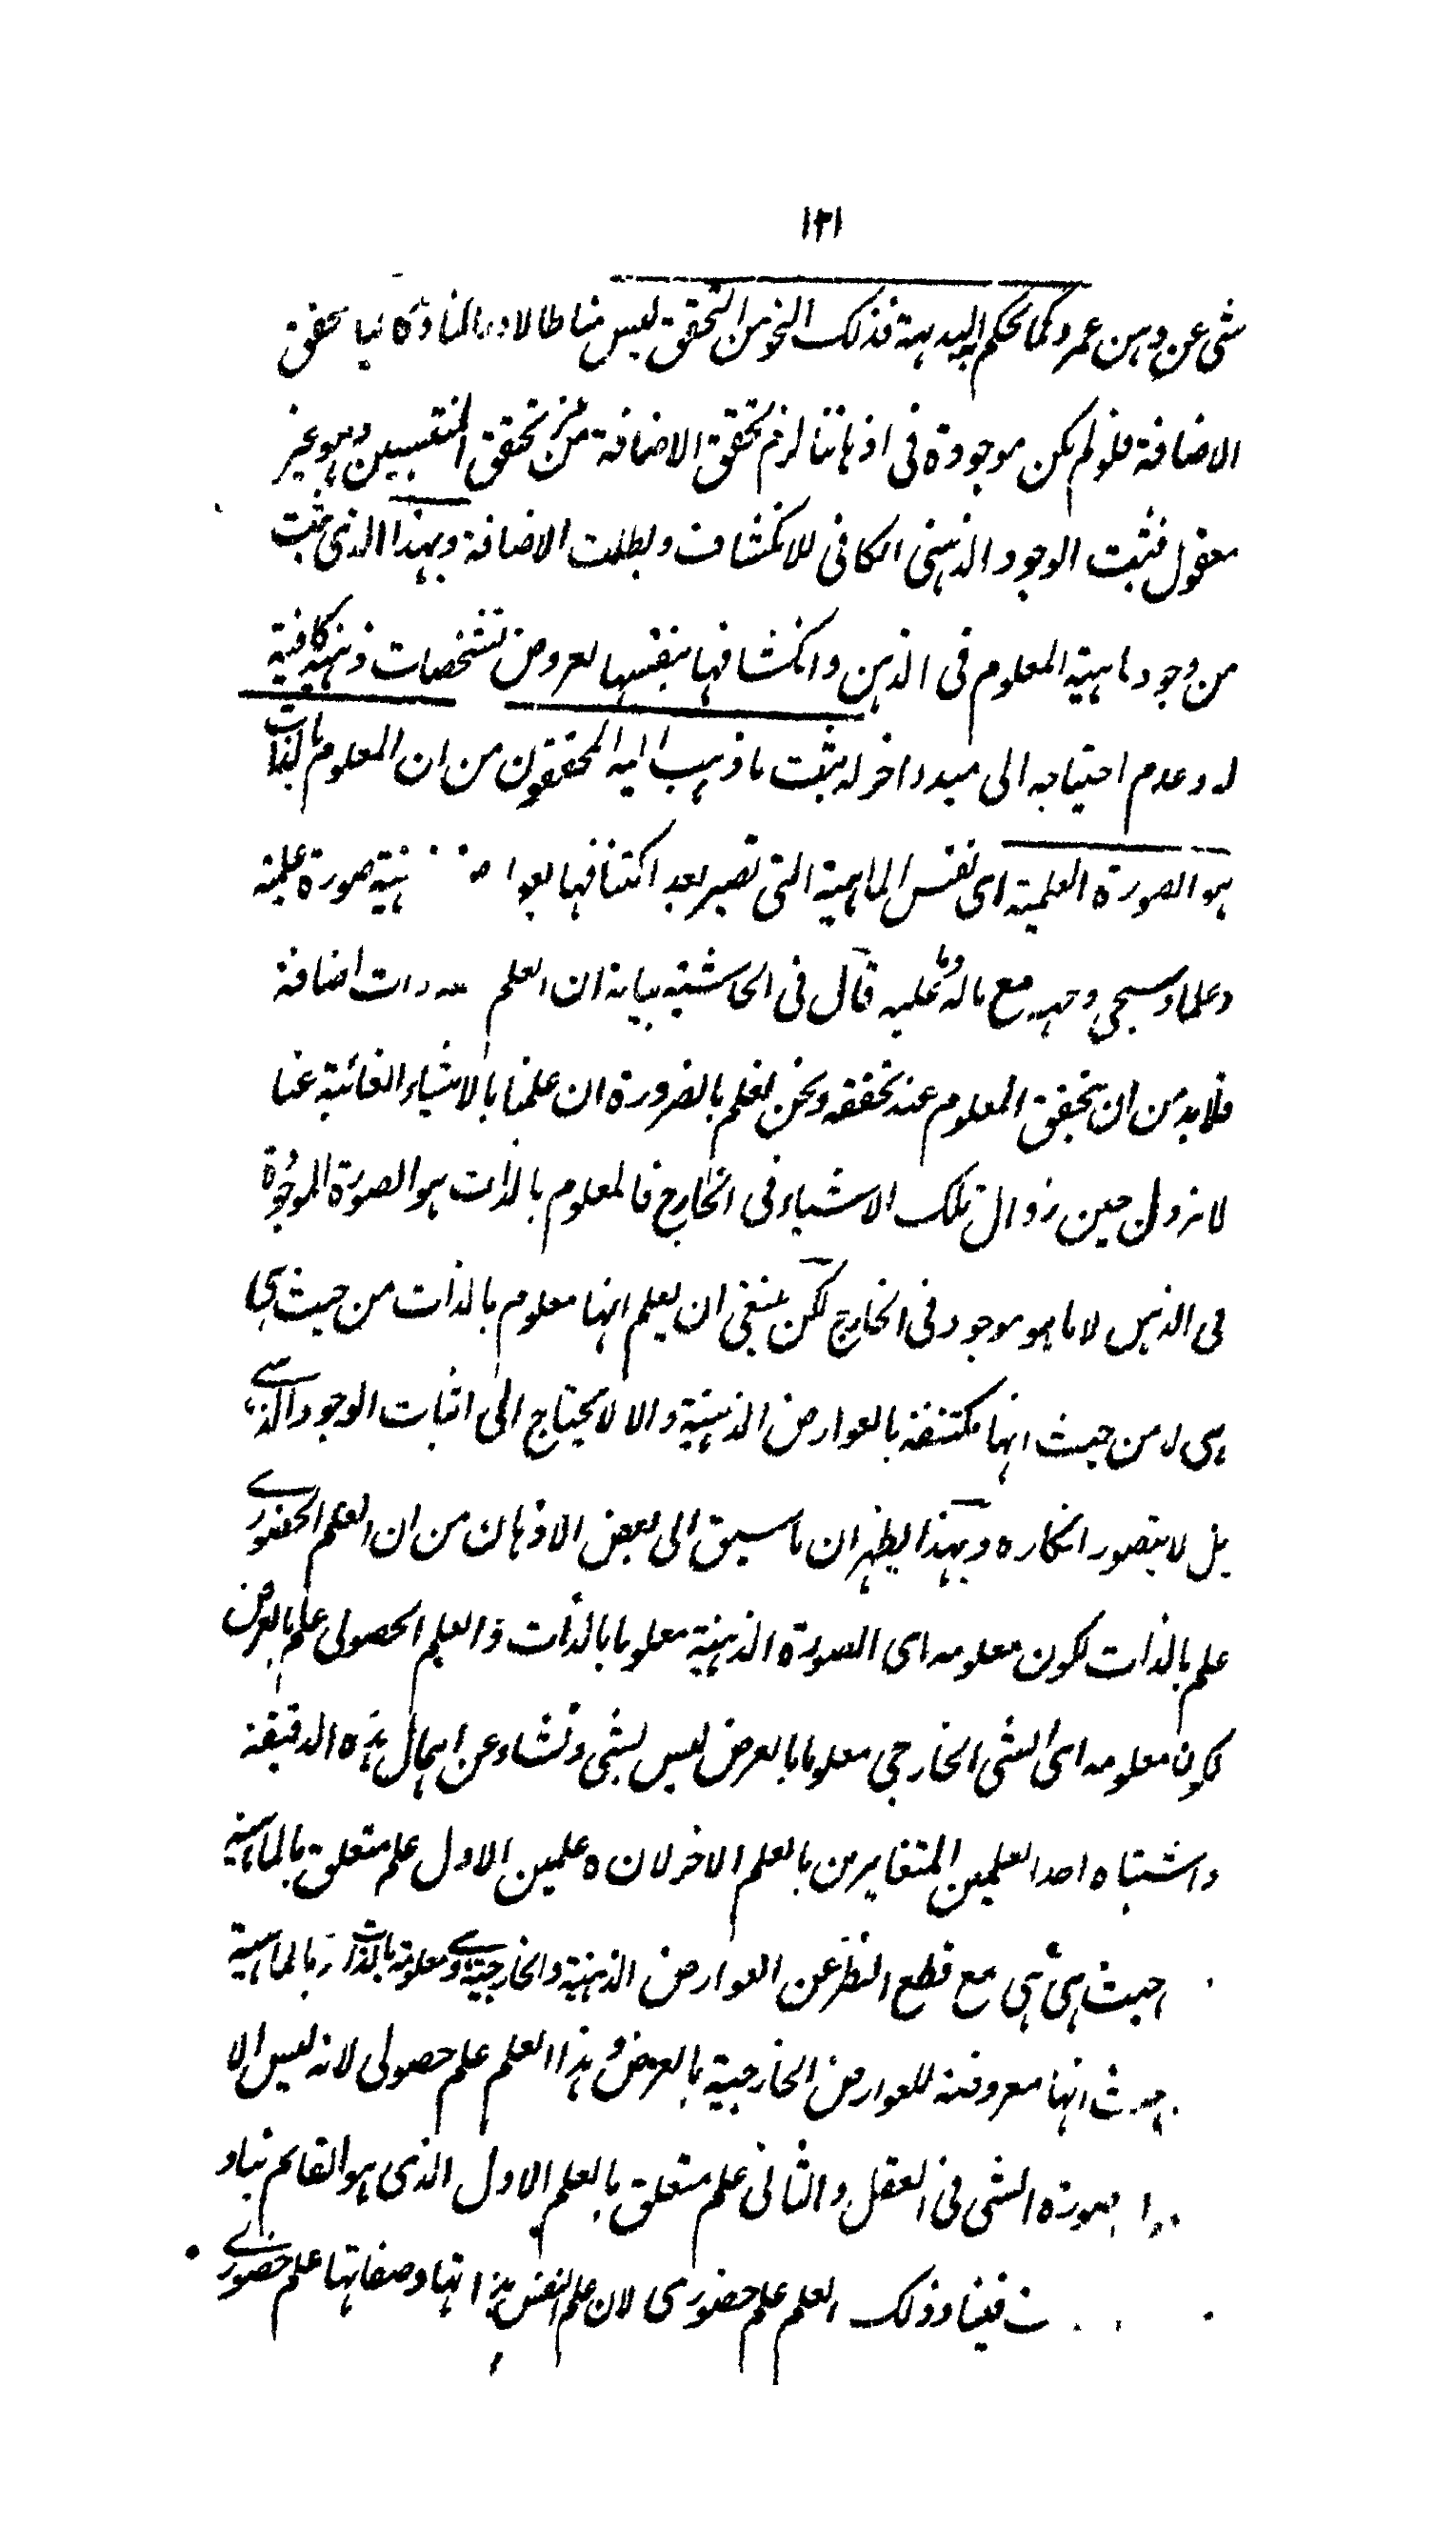 ١٢١
شی عن ذہن عمرو کما یحکم به البدیہة فذلک النحو من التحقق لیس مناطا لادراکنا و کافیا تحقق
الاضافة فلو لم یکن موجودة فی اذہاننا لزم تحقق الاضافة من غیر تحقق المنتسبین و ہو غیر
معقول فثبت الوجود الذہنی الکافی للانکشاف و بطلت الاضافة و بہذا الذی ثبت
من وجود ماہیة المعلوم فی الذہن و انکشافہا بنفسہا لعروض تشخصات ذہنیة کافیة
له و عدم احتیاجه الی مبدء اخر له یثبت ما ذہب الیه المحققون من ان المعلوم بالذات
ہو الصورة العلمیة ای نفس الماہیة التی تصیر بعد اکتنافہا بعوا ہنیة صورة علمیة
و علما و سیجی وجہه مع ما له و ما علیه قال فی الحاشیة بیانه ان العلم ذات اضافة
فلا بد من ان یتحقق المعلوم عند تحققه و نحن نعلم بالضرورة ان علمنا بالاشیاء الغائبة عنا
لا یزول حین زوال تلک الاشیاء فی الخارج فالمعلوم بالذات ہو الصورة الموجودة
فی الذہن لا ما ہو موجود فی الخارج لکن ینبغی ان یعلم انہا معلوم بالذات من حیث ہی
ہی لا من حیث انہا مکتنفة بالعوارض الذہنیة و الا لا یحتاج الی اثبات الوجود الذہنی
بل لا یتصور انکاره و بہذا یظہر ان ما سبق الی بعض الاذہان من ان العلم الحضوری
علم بالذات لکون معلومه ای الصورة الذہنیة معلوما بالذات و العلم الحصولی علم بالعرض
لکون معلومه ای الشی الخارجی معلوما بالعرض لیس بشی و نشاء عن اہمال ہذه الدقیقة
و اشتباه احد العلمین المتغایرین بالعلم الاخر لان ه علمین الاول علم متعلق بالماہیة
حیث ہی ہی مع قطع النظر عن العوارض الذہنیة و الخارجیة و معلومة بالذات بالماہیة
حیث انہا معروضة للعوارض الخارجیة بالعرض و ہذا العلم علم حصولی لانه لیس الا
صورة الشی فی العقل و الثانی علم متعلق بالعلم الاول الذی ہو القائم بنا و
فینا و ذلک العلم علم حضوری لان علم النفس بذاتہا و صفاتہا علم حضوری